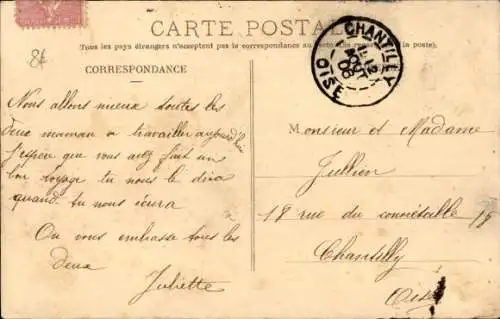 CARTE POSTALE
Tous les pays étrangers n'acceptent pas la correspondance au recto (Se la poste).
CORRESPONDANCE
8f
CHANTILLY
OISE
Nous allons mieux toutes les
deux maman a travailler aujourd'hui
J'espère que vous avez fait un
bon voyage tu nous le dira
quand tu nous écrira
On vous embrasse tous les
deux
Juliette
Monsieur et Madame
Jullien
18 rue du connétable 18
Chantilly
Oise